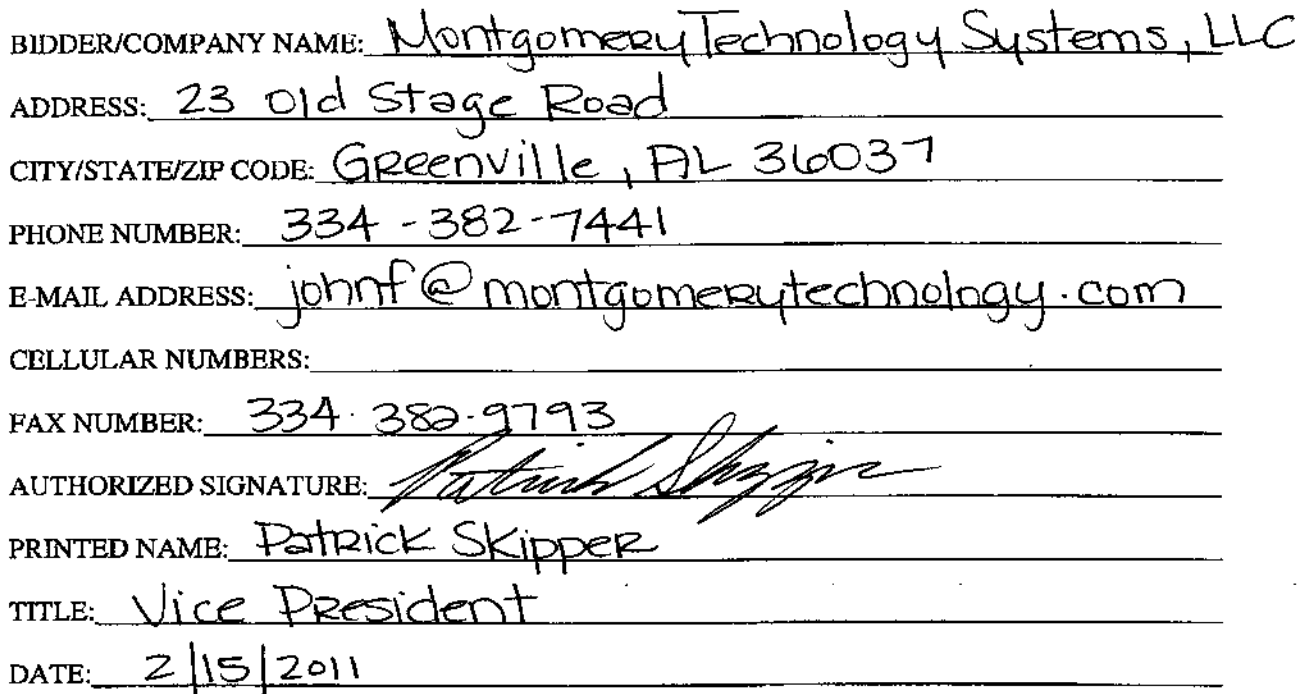 BIDDER/COMPANY NAME: Montgomery Technology Systems, LLC
ADDRESS: 23 Old Stage Road
CITY/STATE/ZIP CODE: Greenville, AL 36037
PHONE NUMBER: 334-382-7441
E-MAIL ADDRESS: johnf@montgomerytechnology.com
CELLULAR NUMBERS:
FAX NUMBER: 334.382.9793
AUTHORIZED SIGNATURE: Patrick Skipper
PRINTED NAME: Patrick Skipper
TITLE: Vice President
DATE: 2/15/2011